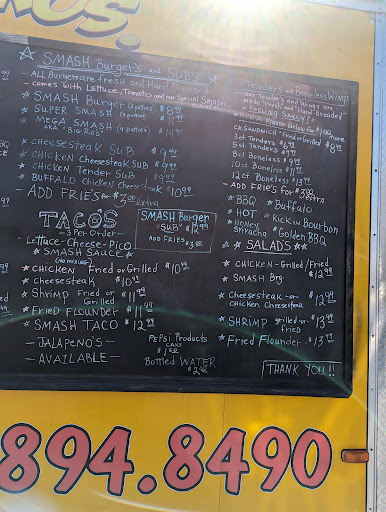 SMASH Burger's and SUBS
- ALL Burgers are fresh and Hand Pressed
- comes with Lettuce, Tomato and our Special Smash
SMASH Burger (2 patties) $9.99
SUPER SMASH (3 patties) $11.99
MEGA SMASH (4 patties) $14.99
AKA "BIG ROB"
Cheesesteak SUB $9.99
Chicken Cheesesteak SUB $9.99
Chicken Tender SUB $9.99
BUFFALO Chicken Cheesesteak $10.99
- ADD FRIES for $3.00 extra
TACOS
- 3 per Order -
Lettuce - Cheese - Pico
SMASH SAUCE
(NO MIXING)
CHICKEN Fried or Grilled $10.99
Cheesesteak $10.99
Shrimp Fried or Grilled $11.99
Fried Flounder $11.99
SMASH TACO $12.99
- JALAPENO'S -
- AVAILABLE -
SMASH Burger
"SUB" $12.99
ADD FRIES $3.00
PEPSI Products
CANS
$1.50
Bottled WATER
$2.00
Tenders and Boneless WINGS
- Our Tenders and Wings are
made Fresh and "Hand-Breaded"
FEELING SAUCEY?
Pick A Flavor Below for $1.00 more
CK SANDWICH "Fried or Grilled" $8.99
3ct Tenders
5ct Tenders
8ct Boneless
10ct Boneless $11.99
12ct Boneless $13.99
- ADD FRIES FOR $3.00 extra
BBQ Buffalo
HOT Kick'in Bourbon
Honey Sriracha Golden BBQ
SALADS
CHICKEN - Grilled / Fried
$12.99
SMASH Brg
Cheesesteak - or - chicken Cheesesteak $13.99
SHRIMP grilled or fried $13.99
Fried Flounder $13.99
THANK YOU!!
894.8490